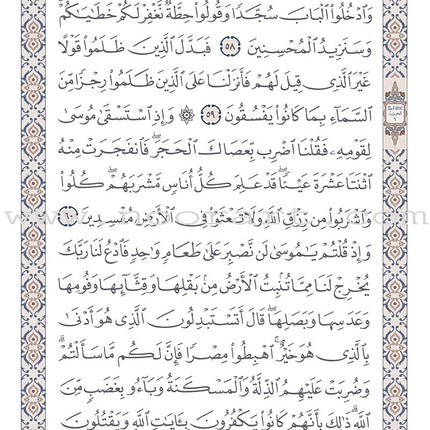 وَٱدۡخُلُواْ ٱلۡبَابَ سُجَّدٗا وَقُولُواْ حِطَّةٞ نَّغۡفِرۡ لَكُمۡ خَطَٰيَٰكُمۡۚ
وَسَنَزِيدُ ٱلۡمُحۡسِنِينَ ٥٨ فَبَدَّلَ ٱلَّذِينَ ظَلَمُواْ قَوۡلًا
غَيۡرَ ٱلَّذِي قِيلَ لَهُمۡ فَأَنزَلۡنَا عَلَى ٱلَّذِينَ ظَلَمُواْ رِجۡزٗا مِّنَ
ٱلسَّمَآءِ بِمَا كَانُواْ يَفۡسُقُونَ ٥٩ ۞ وَإِذِ ٱسۡتَسۡقَىٰ مُوسَىٰ
لِقَوۡمِهِۦ فَقُلۡنَا ٱضۡرِب بِّعَصَاكَ ٱلۡحَجَرَۖ فَٱنفَجَرَتۡ مِنۡهُ
ٱثۡنَتَا عَشۡرَةَ عَيۡنٗاۖ قَدۡ عَلِمَ كُلُّ أُنَاسٖ مَّشۡرَبَهُمۡۖ كُلُواْ
وَٱشۡرَبُواْ مِن رِّزۡقِ ٱللَّهِ وَلَا تَعۡثَوۡاْ فِي ٱلۡأَرۡضِ مُفۡسِدِينَ ٦٠
وَإِذۡ قُلۡتُمۡ يَٰمُوسَىٰ لَن نَّصۡبِرَ عَلَىٰ طَعَامٖ وَٰحِدٖ فَٱدۡعُ لَنَا رَبَّكَ
يُخۡرِجۡ لَنَا مِمَّا تُنۢبِتُ ٱلۡأَرۡضُ مِنۢ بَقۡلِهَا وَقِثَّآئِهَا وَفُومِهَا
وَعَدَسِهَا وَبَصَلِهَاۖ قَالَ أَتَسۡتَبۡدِلُونَ ٱلَّذِي هُوَ أَدۡنَىٰ
بِٱلَّذِي هُوَ خَيۡرٌۚ ٱهۡبِطُواْ مِصۡرٗا فَإِنَّ لَكُم مَّا سَأَلۡتُمۡۗ
وَضُرِبَتۡ عَلَيۡهِمُ ٱلذِّلَّةُ وَٱلۡمَسۡكَنَةُ وَبَآءُو بِغَضَبٖ مِّنَ
ٱللَّهِۗ ذَٰلِكَ بِأَنَّهُمۡ كَانُواْ يَكۡفُرُونَ بِـَٔايَٰتِ ٱللَّهِ وَيَقۡتُلُونَ